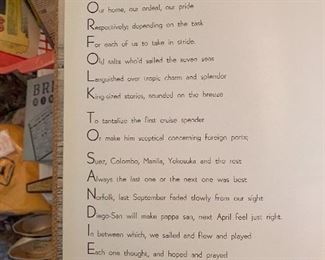 Our home, our ordeal, our pride
Respectively; depending on the task
For each of us to take in stride.
Old salts who'd sailed the seven seas
Languished over tropic charm and splendor
King-sized stories, sounded on the breeze
To tantalize the first cruise spender
Or make him sceptical concerning foreign ports;
Suez, Colombo, Manila, Yokosuka and the rest
Always the last one or the next one was best
Norfolk, last September faded slowly from our sight
Diego-San will make pappa san, next April feel just right.
In between which, we sailed and flew and played
Each one thought, and hoped and prayed
BRI